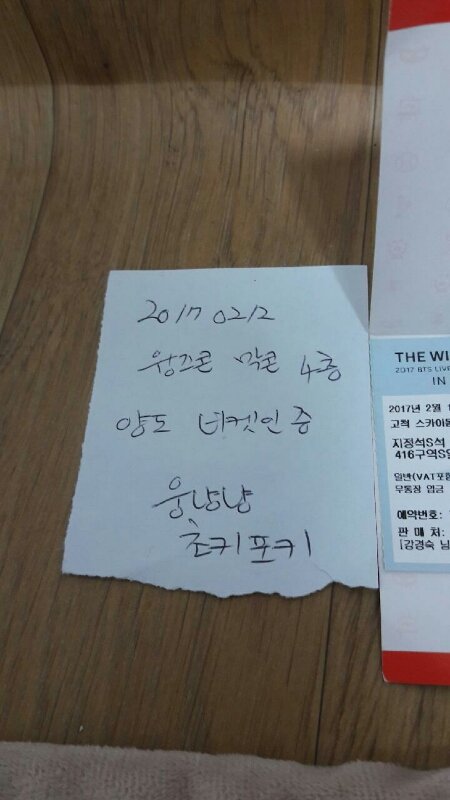 20170212
윙즈콘 막콘 4층
양도 티켓인증
웅냥냥
쵸키포키
THE WI
2017 BTS LIVE
IN
2017년 2월 1
고척 스카이돔
지정석S석
416구역S열
일반(VAT포함
무통장 입금
예약번호:
판 매 처:
[강경숙 님